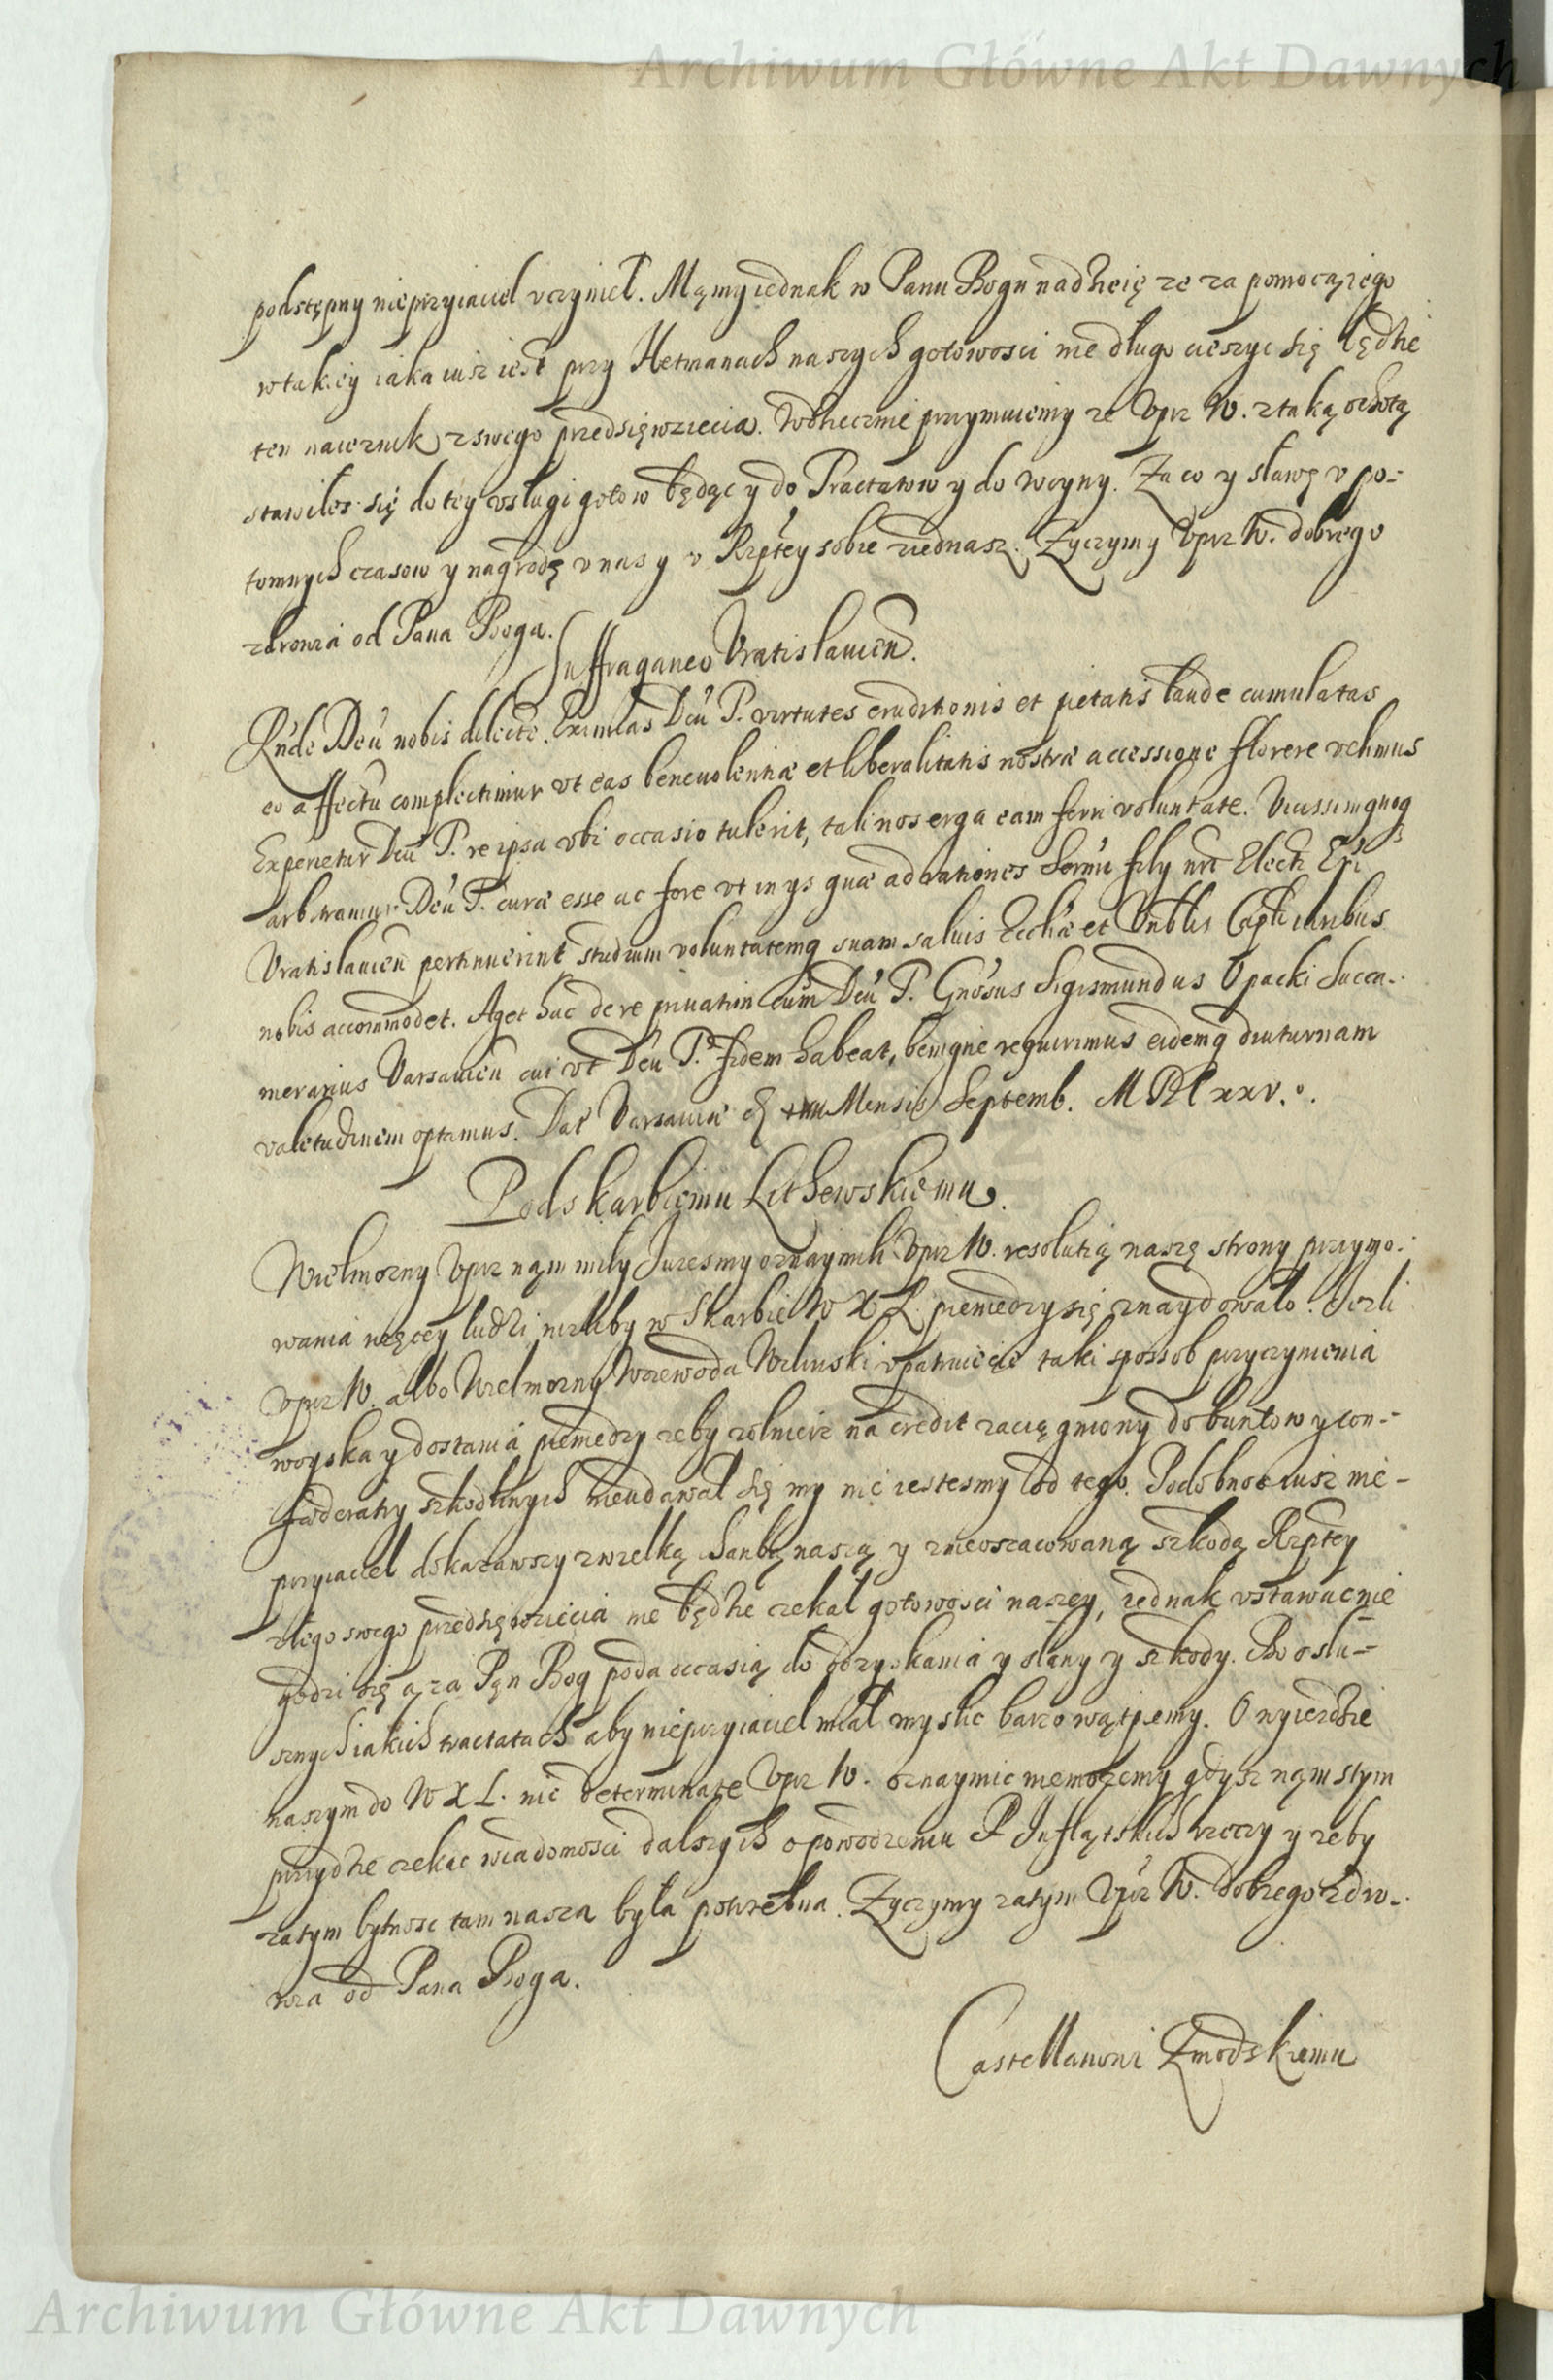 Archiwum Główne Akt Dawnych
podstępny nieprzyiaciel vczynieł. Mąmy iednak w Panu Bogu nadzieię ze za pomocą iego
w takiey iaka iusz iest przy Hetmanach naszych gotowosci nie długo cieszyc się będzie
ten naieznik z swego przedsięwziecia. Wdziecznie przymuiemy ze Uprz W. z taką ochotą
stawiłes się do tey vsługi gotow będąc y do Tractatow y do woyny. Za co y sławę v po-
tomnych czasow y nagrodę v nas y v Rzptey sobie ziednasz. Zyczymy Uprz W. dobrego
zdrowia od Pana Boga.
Suffraganeo Vratislauien.
Rnde Deu nobis dilecte. Eximias Deu P. virtutes eruditionis et pietatis laude cumulatas
eo affectu complectimur vt eas beneuolentiæ et liberalitatis nostræ accessione florere velimus
Experietur Deu P. re ipsa vbi occasio tulerit, tali nos erga eam ferri voluntate. Vicissim quoq
arbitramur Deu P. curæ esse ac fore vt in ys quæ ad rationes Sermi fily nri Electi Epi
Vratislauien pertinuerint studium voluntatemq suam saluis Eccliæ et Vnblis Capli iuribus
nobis accommodet. Aget hac de re priuatim cum Deu P. Gnosus Sigismundus Opacki Succa-
merarius Varsauien cui vt Deu P. fidem habeat, benigne requirimus eidemq diuturnam
valetudinem optamus. Dat Varsauiæ Mensis Septemb. MDCxxv.
Podskarbiemu Lithewskiemu.
Wielmozny Uprz nąm miły Juzesmy oznaymili Uprz W. resolutią naszę strony przyymo-
wania więcey ludzi niżliby w Skarbie W X L pieniedzy się znaydowało. Jezli
Uprz W. albo Wielmozny Woiewoda Wilenski vpatruiecie taki sposob przyczynienia
woyska y dostania pieniedzy zeby zołnierz na credit zaciągniony do buntow y con-
foederatiy szkodliwych nieudawał się my nie iestesmy od tego. Podobno iusz nie-
przyiaciel dokazawszy z wielką hanbą naszą y z nieoszacowaną szkodą Rzptey
złego swego przedsięwziecia nie będzie czekał gotowosci naszey, iednak vstawac nie
godzi się ąza Pąn Bog poda occasią do odzyskania y sławy y szkody. Bo o słu-
sznych iakich tractatach aby nieprzyiaciel miał myslic barzo wątpiemy. O wyiezdzie
naszym do W X L. nic determinate Uprz W. oznaymic niemożemy gdysz nąm s tym
przydzie czekac wiadomosci dalszych o powodzeniu P Inflątskich rzeczy y zeby
zatym bytnosc tam nasza była potrzebna. Zyczymy zatym Uprz W. dobrego zdro-
wia od Pana Boga.
Castellanowi Zmodskiemu
Archiwum Główne Akt Dawnych